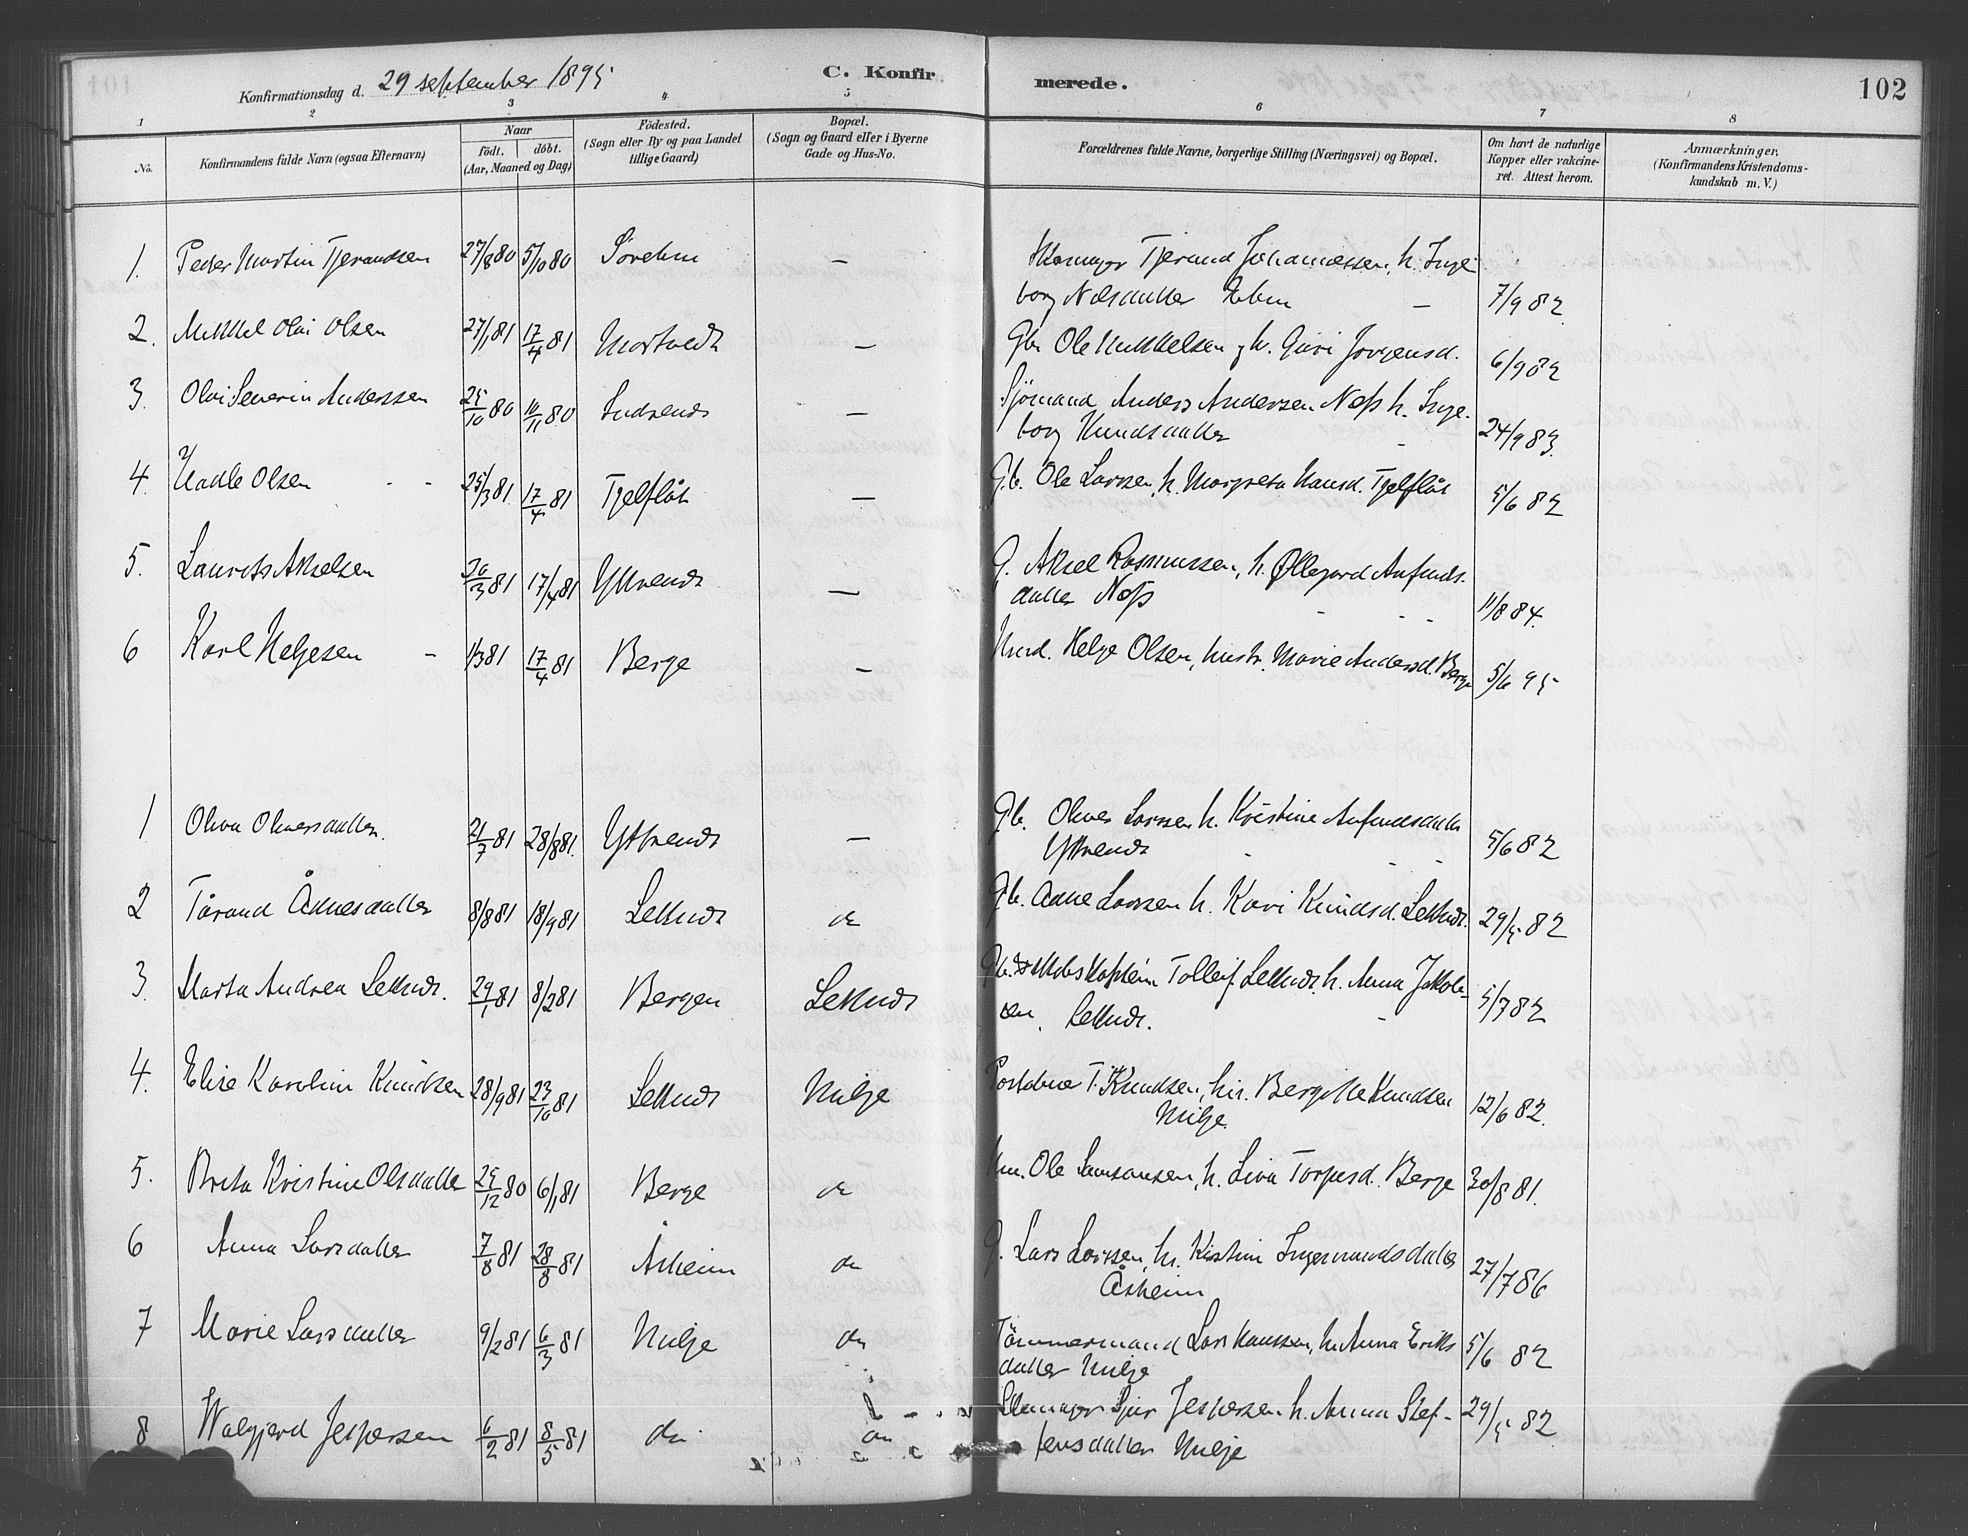 Konfirmationsdag d. 29 september 1895
C. Konfirmerede.
102
1 2 3 4 5 6 7 8
No.
Konfirmandens fulde Navn (ogsaa Efternavn)
Naar
født. døbt.
(Aar, Maaned og Dag)
Fødested.
(Sogn eller By og paa Landet
tillige Gaard)
Bopæl.
(Sogn og Gaard eller i Byerne
Gade og Hus-No.
Forældrenes fulde Navne, borgerlige Stilling (Næringsvei) og Bopæl.
Om havt de naturlige
Kopper eller vakcine-
ret. Attest herom.
Anmærkninger,
(Konfirmandens Kristendoms-
kundskab m. V.)
1. Peder Martin Tjerandsen 27/8 80 5/10 80 Søreim — Skomager Tjerand Johannessen, h. Inge
borg Nilsdatter — 7/9 82
2. Mikkel Olai Olsen 27/1 81 17/4 81 Mortvedt — Gbr Ole Mikkelsen, h. Guri Jørgensd. 6/9 82
3. Olai Severin Anderssen 25/10 80 10/11 80 Indrenæs — Sjömand Anders Andersen Næss h. Inge-
borg Knudsdatter 24/9 83.
4. Aadle Olsen 25/3 81 17/4 81 Tjelflåt — Gb. Ole Larssen, h. Margreta Hansd. Tjelflåt 5/6 82
5. Laurits Akselsen 30/3 81 17/4 81 Yttrenæs — G. Aksel Rasmussen, h. Øllegard Anfinds-
datter Næss 11/8 84.
6 Karl Helgesen 1/3 81 17/4 81 Berge — Hmd. Helge Olsen, hustr. Marie Andersd. Berge 5/6 95
1 Oliva Oliversdatter. 21/7 81 28/8 81. Yttrenæs — Gb. Oliver Larssen h. Kristine Anfindsdatter
Yttrenæs 5/6 82
2 Tårand Ådnesdatter 8/8 81 18/9 81 Lekknæs do Gb. Adne Larssen h. Kari Knudsd. Lekknæs. 29/5 82
3. Marta Andrea Lekknæs. 29/1 81 8/2 81 Bergen Lekknæs Tolleif Lekknæs h. Anna Jakob-
sen, Lekknæs. 5/7 82
4. Elise Karoline Knudsen 28/9 81 23/10 81 Lekknæs Milje T. Knudsen, h. Bergitte Knudsen
Milje 12/6 82.
5. Brita Kristine Olsdatter 25/12 80 6/1 81 Berge do Hm. Ole Samsonsen, h. Liva Torgersd. Berge 30/8 81.
6 Anna Larsdatter 7/8 81 28/8 81 Åsheim do G. Lars Larssen, h. Kristine Ingemundsdatter
Åsheim 27/7 86
7 Marie Larsdatter 9/2 81 6/3 81 Milje do Tömmermand Lars Hanssen, h. Anna Eriks
datter Milje 5/6 82
8 Walgjerd Jespersen 6/2 81 8/5 81 do do Skomager Sjur Jespersen h. Anna Stef-
fensdatter Milje 29/5 82